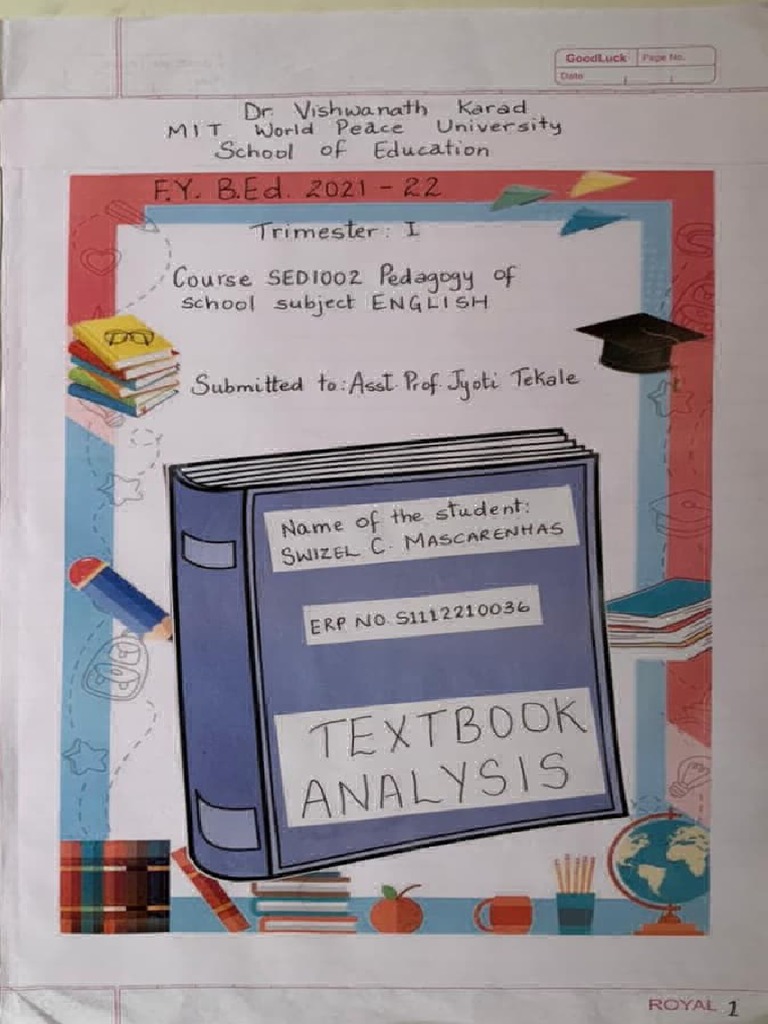 GoodLuck Page No.
Date
Dr. Vishwanath Karad
MIT World Peace University
School of Education
F.Y. B.Ed. 2021 - 22
Trimester: I
Course SED1002 Pedagogy of
school subject ENGLISH
Submitted to: Asst. Prof. Jyoti Tekale
Name of the student:
SWIZEL C. MASCARENHAS
ERP NO. S1112210036
TEXTBOOK
ANALYSIS
ROYAL 1